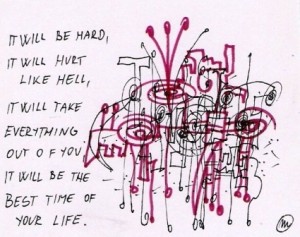 IT WILL BE HARD,
IT WILL HURT
LIKE HELL,
IT WILL TAKE
EVERYTHING
OUT OF YOU
IT WILL BE THE
BEST TIME OF
YOUR LIFE.